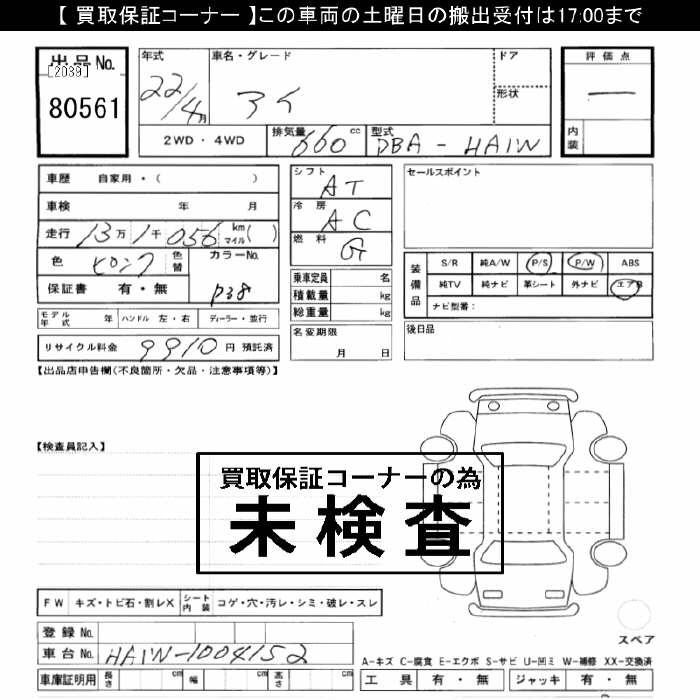 【 買取保証コーナー 】この車両の土曜日の搬出受付は17:00まで
出品No.
[2039]
80561
年式 22/4月
車名・グレード アイ
ドア
形状
2WD・4WD
排気量 660 cc
型式 DBA-HA1W
評価点 ー
内装
車歴 自家用・( )
車検 年 月
走行 13万1千056 km マイル( )
色 ピンク 色替
カラーNo. P38
保証書 有・無
モデル年式 年 ハンドル 左・右 ディーラー・並行
リサイクル料金 9910 円 預託済
シフト AT
冷房 AC
燃料 G
乗車定員 名
積載量 kg
総重量 kg
名変期限 月 日
セールスポイント
装備品
S/R 純A/W P/S P/W ABS
純TV 純ナビ 革シート 外ナビ エアB
ナビ型番:
後日品
【出品店申告欄(不良箇所・欠品・注意事項等)】
【検査員記入】
買取保証コーナーの為
未検査
FW キズ・トビ石・割レX シート内装 コゲ・穴・汚レ・シミ・破レ・スレ
登録No.
車台No. HA1W-1004152
車庫証明用 長さ cm 幅 cm 高さ cm
スペア
A-キズ C-腐食 E-エクボ S-サビ U-凹ミ W-補修 XX-交換済
工具 有・無 ジャッキ 有・無